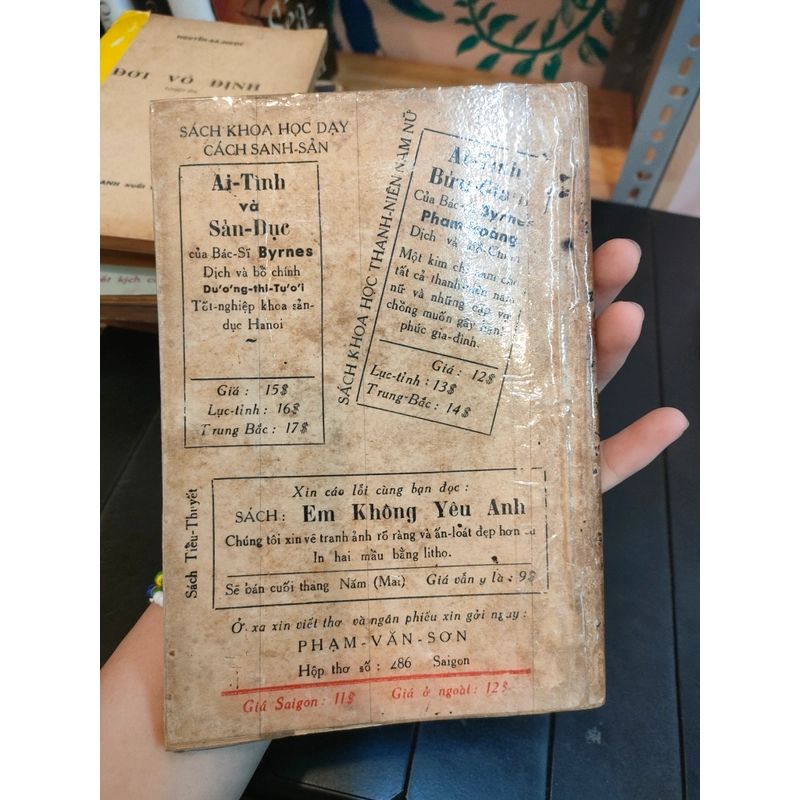 NGUYỄN-BÁ-NGỌC
ĐỜI VÔ ĐỊNH
SÁCH KHOA HỌC DẠY
CÁCH SANH-SẢN
Ai-Tình
và
Sản-Dục
của Bác-Sĩ Byrnes
Dịch và bồ chính
Dư-ơ-ng-thi-Tư-ơ-i
Tốt-nghiệp khoa sản-
dục Hanoi
Giá : 15$
Lục-tỉnh : 16$
Trung Bắc : 17$
SÁCH KHOA HỌC THANH-NIÊN NAM NỮ
Của Bác-Sĩ Byrnes
Dịch và
Một kim chỉ nam cho
tất cả thanh-niên nam
nữ và những cặp vợ
chồng muốn gây hạnh
phúc gia-đình.
Giá : 12$
Lục-tỉnh : 13$
Trung-Bắc : 14$
Sách Tiểu-Thuyết
Xin cáo lỗi cùng bạn đọc :
SÁCH : Em Không Yêu Anh
Chúng tôi xin vẽ tranh ảnh rõ ràng và ấn-loát đẹp hơn
In hai mầu bằng litho.
Sẽ bán cuối thang Năm (Mai) Giá vẫn y là : 9$
Ở xa xin viết thơ và ngân phiếu xin gởi ngay :
PHẠM-VĂN-SƠN
Hộp thơ số : 286 Saigon
Giá Saigon : 11$ Giá ở ngoài : 12$